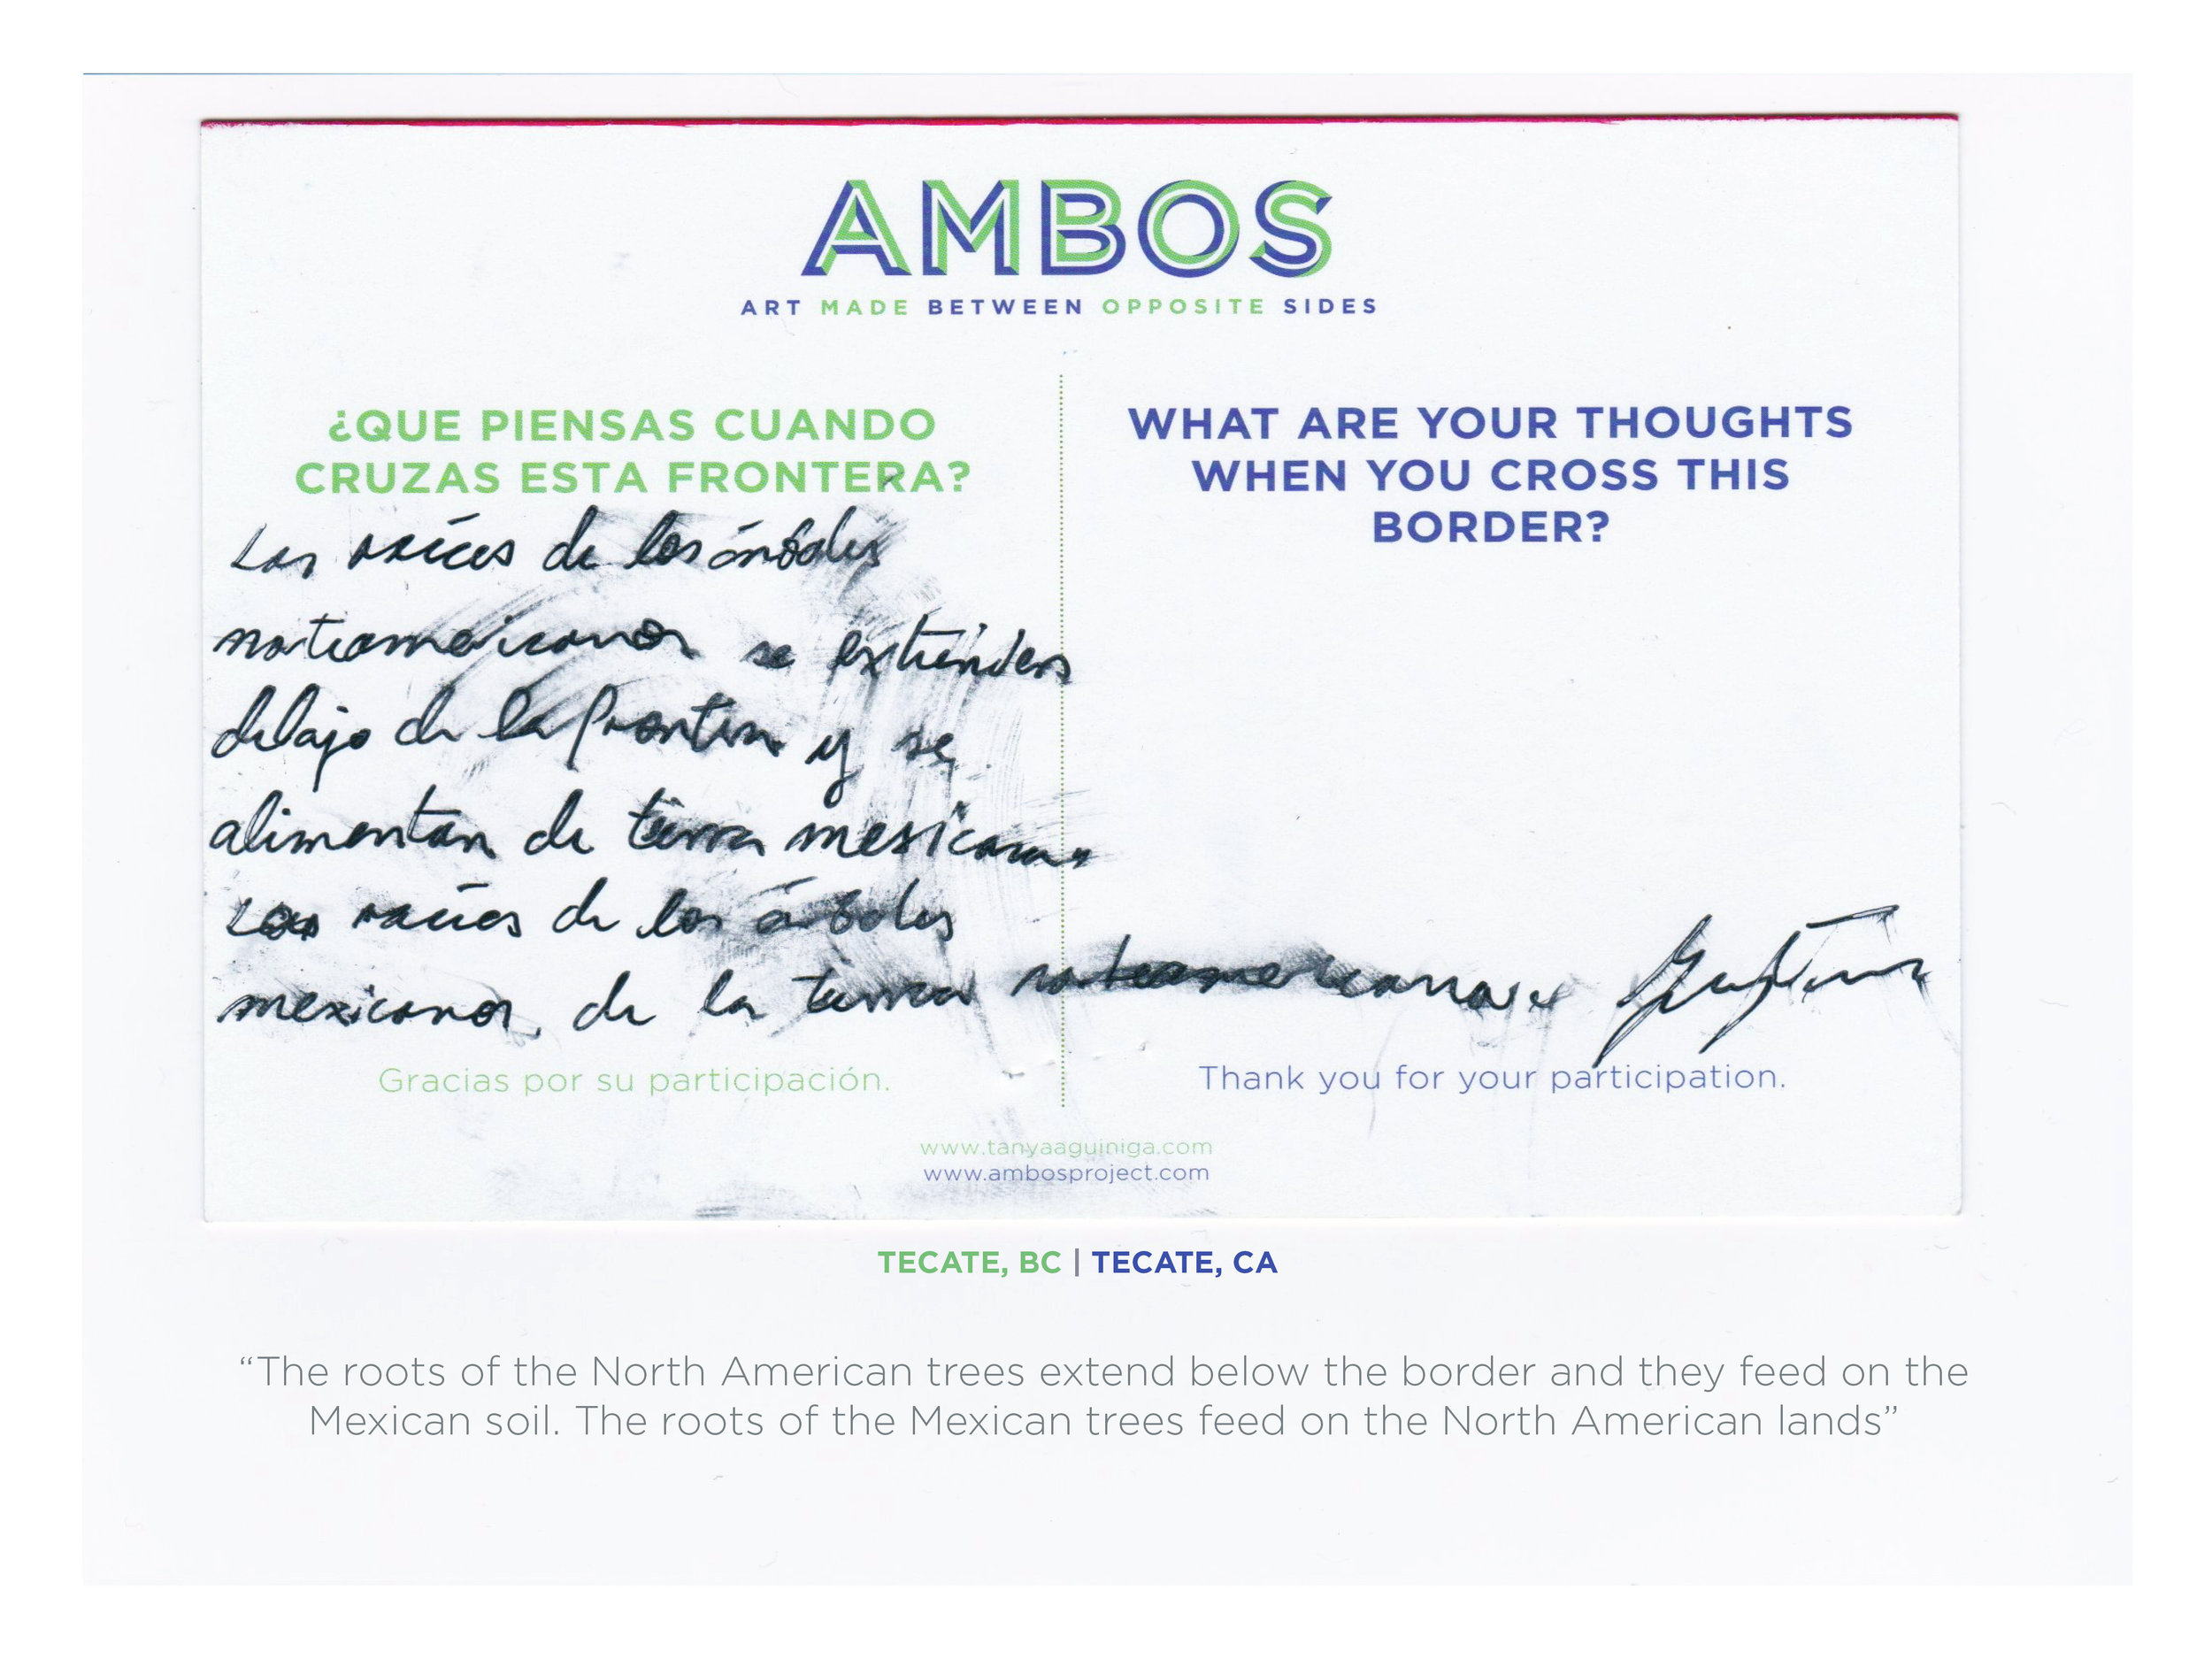 AMBOS
ART MADE BETWEEN OPPOSITE SIDES
¿QUE PIENSAS CUANDO
CRUZAS ESTA FRONTERA?
Las raíces de los árboles
norteamericanos se extienden
debajo de la frontera y se
alimentan de tierra mexicana
Las raíces de los árboles
mexicanos, de la tierra norteamericana.
Gracias por su participación.
WHAT ARE YOUR THOUGHTS
WHEN YOU CROSS THIS
BORDER?
Thank you for your participation.
www.tanyaaguiniga.com
www.ambosproject.com
TECATE, BC | TECATE, CA
“The roots of the North American trees extend below the border and they feed on the
Mexican soil. The roots of the Mexican trees feed on the North American lands”